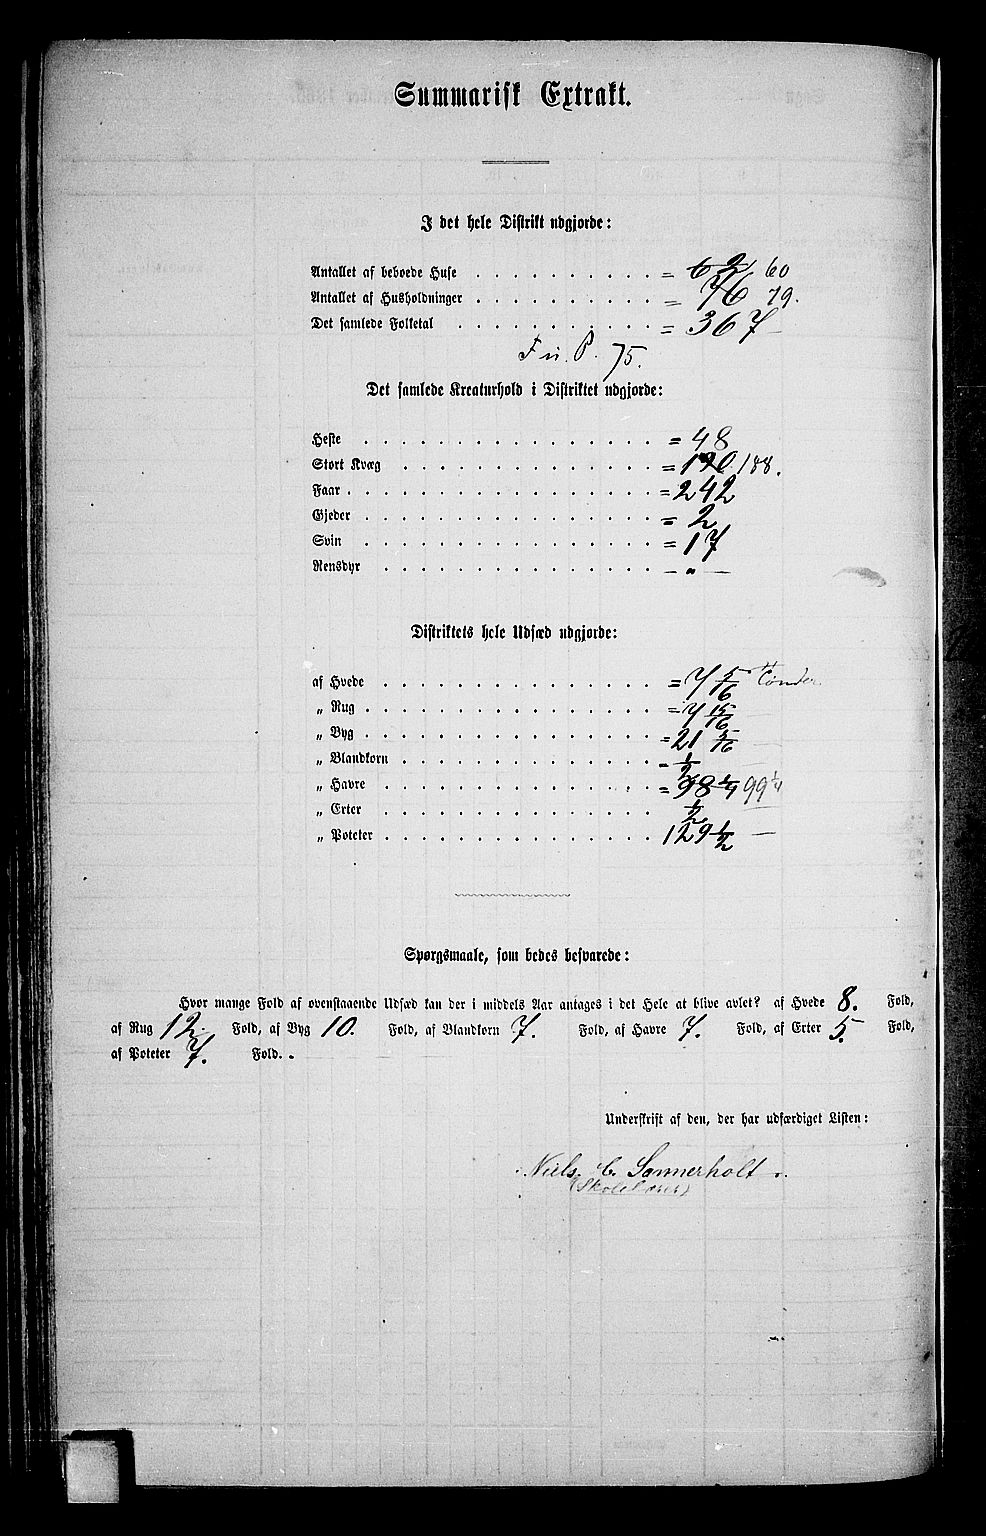 Summarisk Extrakt.
I det hele Distrikt udgjorde:
Antallet af beboede Huse = 62 60
Antallet af Husholdninger = 76 79.
Det samlede Folketal = 367
F. u. P. 75.
Det samlede Kreaturhold i Distriktet udgjorde:
Heste = 48
Stort Kvæg = 190 188.
Faar = 242
Gjeder = 2
Svin = 17
Rensdyr — " —
Distriktets hele Udsæd udgjorde:
af Hvede = 7 5/16 Tønder
„ Rug = 7 15/16 —
„ Byg = 21 5/16 —
„ Blandkorn = 1/2 —
„ Havre = 98 1/4 99 1/4
„ Erter 1/2 —
„ Poteter 129 1/2 —
Spørgsmaale, som bedes besvarede:
Hvor mange Fold af ovenstaaende Udsæd kan der i middels Aar antages i det Hele at blive avlet? af Hvede 8. Fold,
af Rug 12. Fold, af Byg 10. Fold, af Blandkorn 7. Fold, af Havre 7. Fold, af Erter 5. Fold,
af Poteter 7. Fold.
Underskrift af den, der har udfærdiget Listen:
Niels C. Sonnerholt
(Skolelærer)